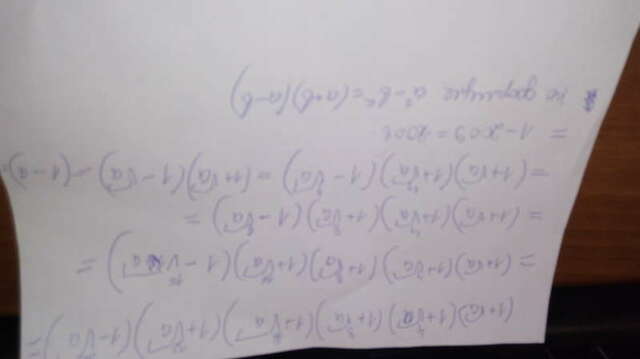 (1+√a)(1+⁴√a)(1+⁸√a)(1+¹⁶√a)(1+³²√a)(1-³²√a)=
=(1+√a)(1+⁴√a)(1+⁸√a)(1+¹⁶√a)(1-¹⁶√a)=
=(1+√a)(1+⁴√a)(1+⁸√a)(1-⁸√a)=
=(1+√a)(1+⁴√a)(1-⁴√a)=(1+√a)(1-√a)=(1-a)=
=1-2009=-2008
* по формуле a²-b²=(a+b)(a-b)